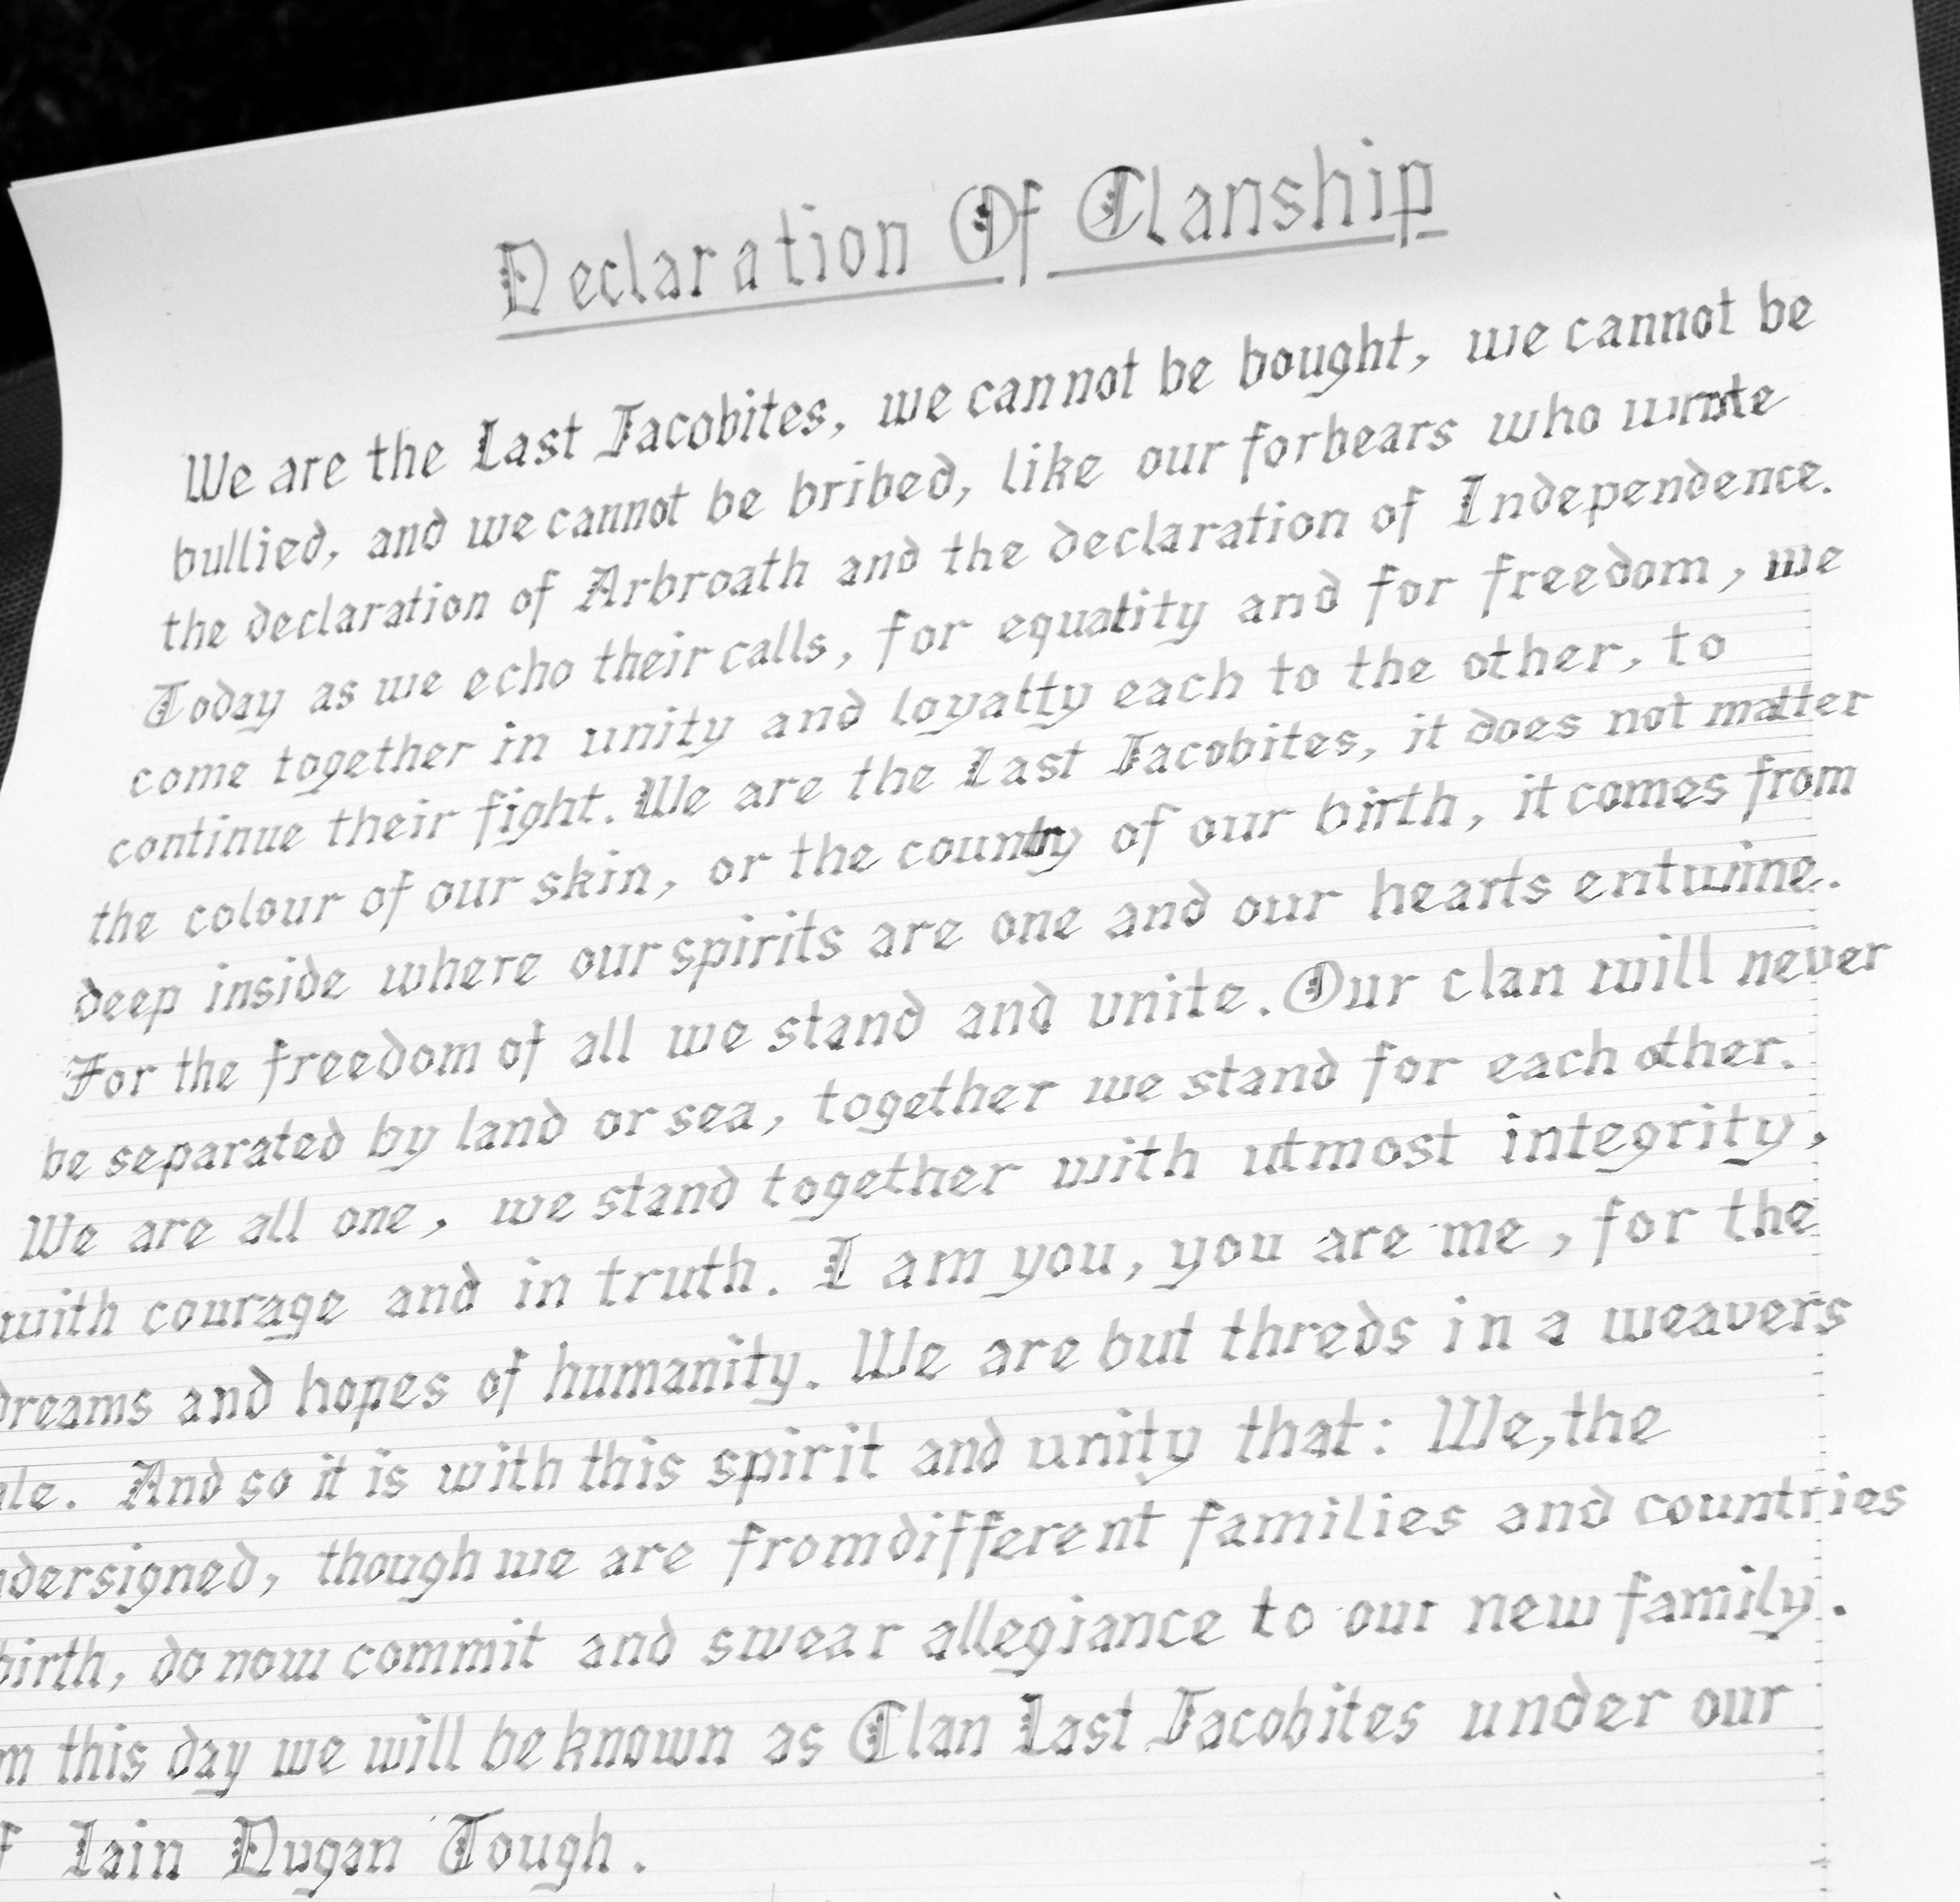 Declaration Of Clanship
We are the Last Jacobites, we cannot be bought, we cannot be
bullied, and we cannot be bribed, like our forbears who wrote
the declaration of Arbroath and the declaration of Independence.
Today as we echo their calls, for equality and for freedom, we
come together in unity and loyalty each to the other, to
continue their fight. We are the Last Jacobites, it does not matter
the colour of our skin, or the country of our birth, it comes from
deep inside where our spirits are one and our hearts entwine.
For the freedom of all we stand and unite. Our clan will never
be separated by land or sea, together we stand for each other.
We are all one, we stand together with utmost integrity,
with courage and in truth. I am you, you are me, for the
dreams and hopes of humanity. We are but threds in a weavers
And so it is with this spirit and unity that: We, the
ndersigned, though we are from different families and countries
birth, do now commit and swear allegiance to our new family.
m this day we will be known as Clan Last Jacobites under our
f Iain Dugan Tough.